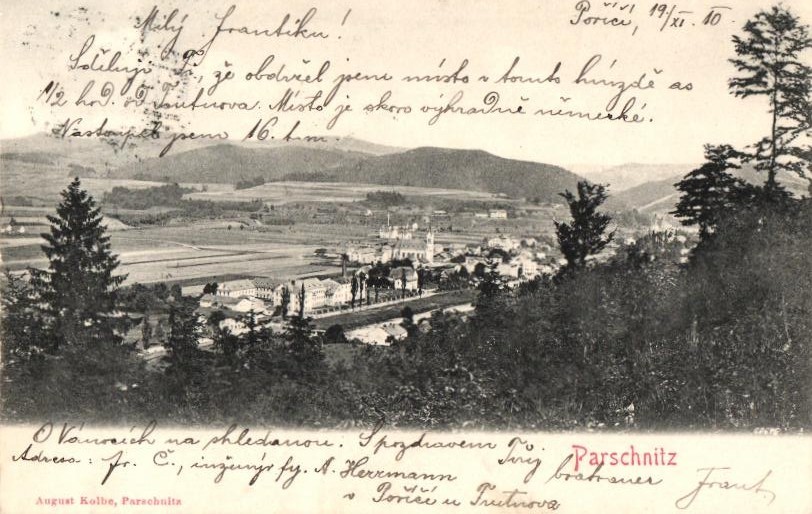 Poříčí, 19/XI. 10.
Milý Frantíku!
Sděluji Ti, že obdržel jsem místo v tomto hnízdě as
1/2 hod. od Trutnova. Místo je skoro výhradně německé.
Nastoupil jsem 16. t.m
O Vánocích na shledanou. S pozdravem Tvůj bratranec
Parschnitz
Adresa: fr. Č., inženýr fy. A. Herrmann Frant.
v Poříčí u Trutnova
August Kolbe, Parschnitz